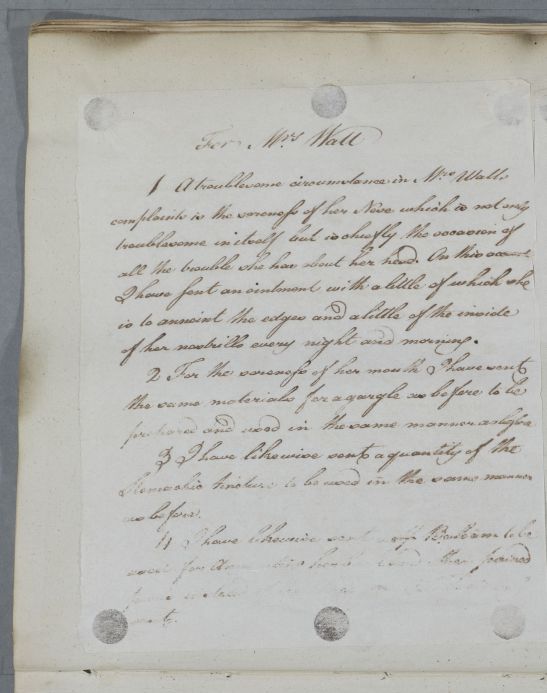 For Mrs Wall
1 A troublesome circumstance in Mrs Walls
complaints is the soreness of her Nose which is not only
troublesome in itself but is chiefly the occasion of
all the trouble she has about her head. On this account
I have sent an ointment with a little of which she
is to annoint the edges and a little of the inside
of her nostrills every night and morning.
2 For the soreness of her mouth I have sent
the same materials for a gargle as before to be
prepared and used in the same manner as before
3 I have likewise sent a quantity of the
Stomachic tincture to be used in the same manner
as before.
4 I have likewise sent Balsam to be
used for pained